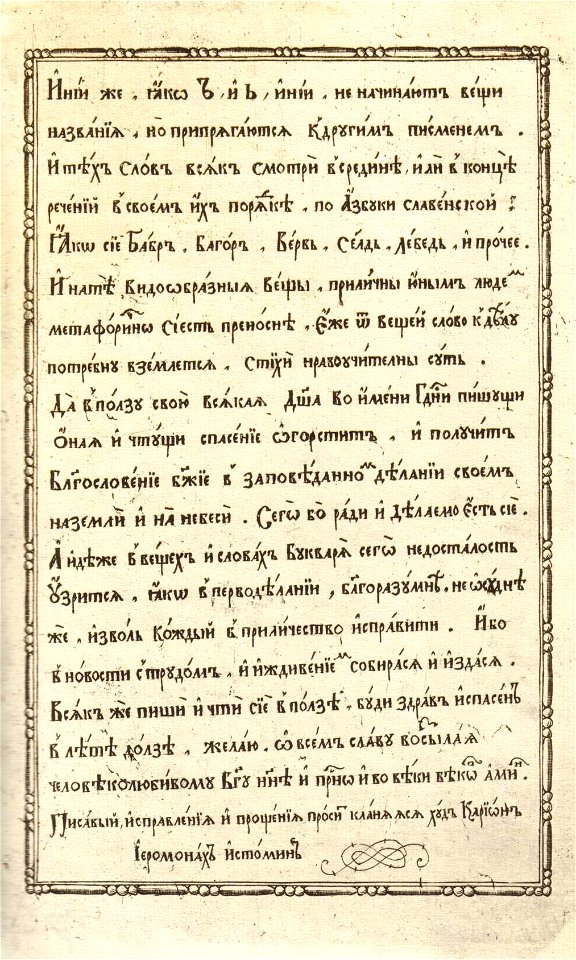 И҆ні́и же , ꙗ҆́кѡ Ъ , и҆ Ь , и҆ні́и , не начина́ютъ ве́щи
назва́нїѧ , но̀ припрѧга́ютсѧ к̾други̑мъ пи́сменемъ .
И҆ тѣ́хъ сло́въ всѧ́къ смотрѝ в̾среди́нѣ , и҆лѝ в̾ конц́ѣ
рече́нїй в̾ свое́мъ и҆́хъ порѧ́дкѣ , по А҆́збуки славе́нской :
Ꙗ҆́кѡ сїѐ Ба́бръ , Баго́ръ , Ве́рвь , Се́лдь , Ле́бедь , и҆ про́чее .
И҆ на тѣ̀ видоѡбра́зныѧ ве́щы , прили́чны ю҆́нымъ люде́м
метафори́чнѡ сі́есть прено́снѣ , є҆́же ѿ веще́й сло́во к̾ дꙋ́хꙋ
потре́бнꙋ взе́млетсѧ . стїхѝ нравоꙋчи́телны сꙋ́ть .
Да̀ в̾ по́лзꙋ свою̀ всѧ́каѧ Дш҃а̀ во и҆́мени Гдⷭ҇ни пи́шꙋщи
о҆́наѧ и҆ чтꙋ́щи спасе́нїе ѡ҆горсти́тъ , и҆ полꙋчи́тъ
Блгⷭ҇ослове́нїе Бж҃їе в̾ заповѣ́данномъ дѣ́ланїи свое́мъ
на землѝ и҆ на̀ небесѝ . Сегѡ̀ бо̀ ра́ди и҆ дѣ́лаемо є҆́сть сїѐ .
А҆ и҆дѣ́же в̾ ве́щехъ и҆ слова́хъ Бꙋкварѧ̀ сегѡ̀ недоста́лость
ᲂу҆́зритсѧ , ꙗ҆́кѡ в̾ перводѣ́ланїи , благоразꙋ́мнѣ , не ѡ҆сꙋ́днѣ
же , и҆зво́ль ко́ждый в̾ прили́чество и҆спра́вити . И҆́бо
в̾ но́вости с̾ трꙋдо́мъ , и҆ и҆ждиве́нїемъ собира́сѧ и҆ и҆зда́сѧ .
Всѧ́къ же пишѝ и҆ чтѝ сїѐ в̾ по́лзѣ , бꙋ́ди здра́въ и҆ спасе́нъ
в̾ лѣ́тѣ до́лзѣ , жела́ю . ѡ҆ все́мъ сла́вꙋ возсыла́ѧ
человѣколюби́вомꙋ Бг҃ꙋ нн҃ѣ и҆ при́снѡ и҆ во вѣ́ки вѣкѡ́въ а҆ми́нь .
Писа́вый , и҆справле́нїѧ и҆ проще́нїѧ про́ситъ кла́нѧѧсѧ хꙋ́дъ Карїѡ́нъ
І҆еромона́хъ И҆сто́минъ